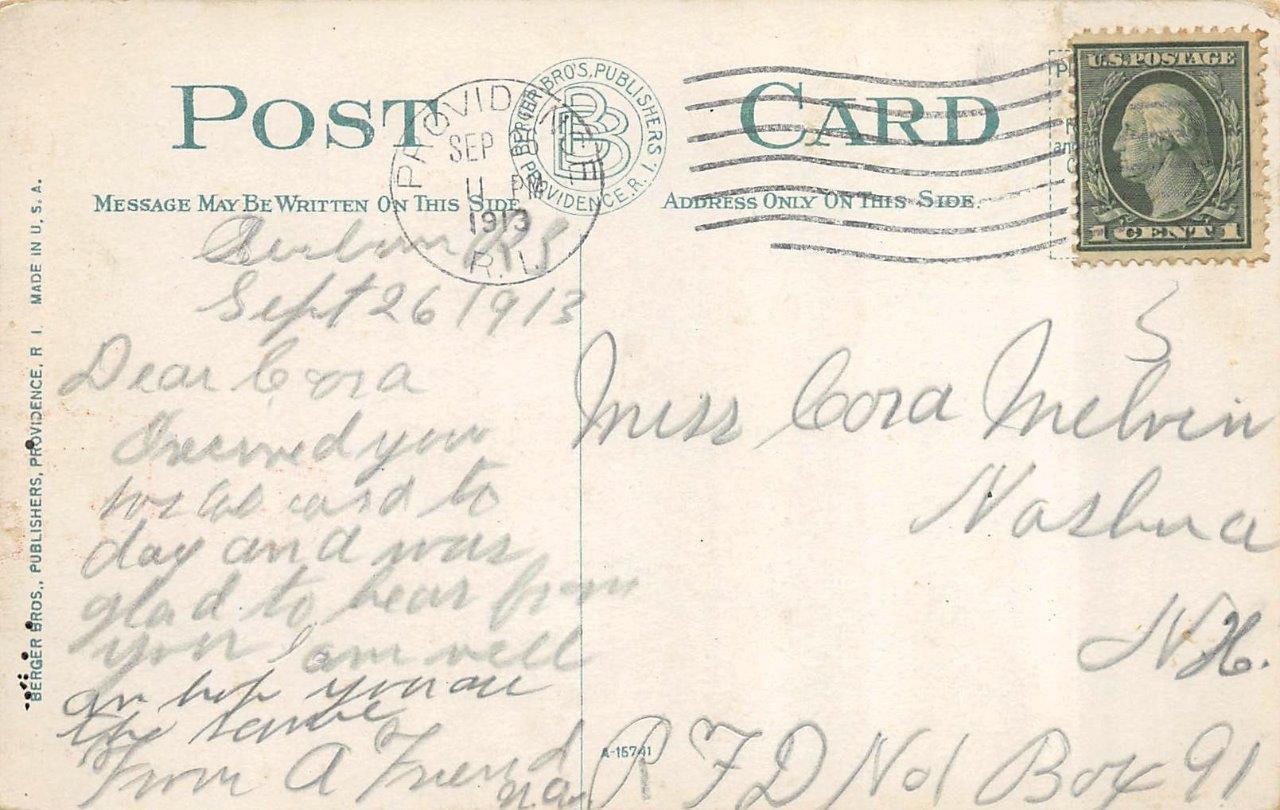 POST CARD
BERGER BRO'S, PUBLISHERS
PROVIDENCE, R. I.
BB
MESSAGE MAY BE WRITTEN ON THIS SIDE
ADDRESS ONLY ON THIS SIDE.
PROVID
SEP
11 PM
1913
R. I.
U.S. POSTAGE
1 CENT 1
BERGER BROS., PUBLISHERS, PROVIDENCE, R. I. MADE IN U. S. A.
Auburn RI
Sept 26 1913
Dear Cora
I received your
card to
day and was
glad to hear from
you I am well
an hop you are
the same
From A Friend
Miss Cora Melvin
Nashua
N.H.
R F D No 1 Box 91
A-15741